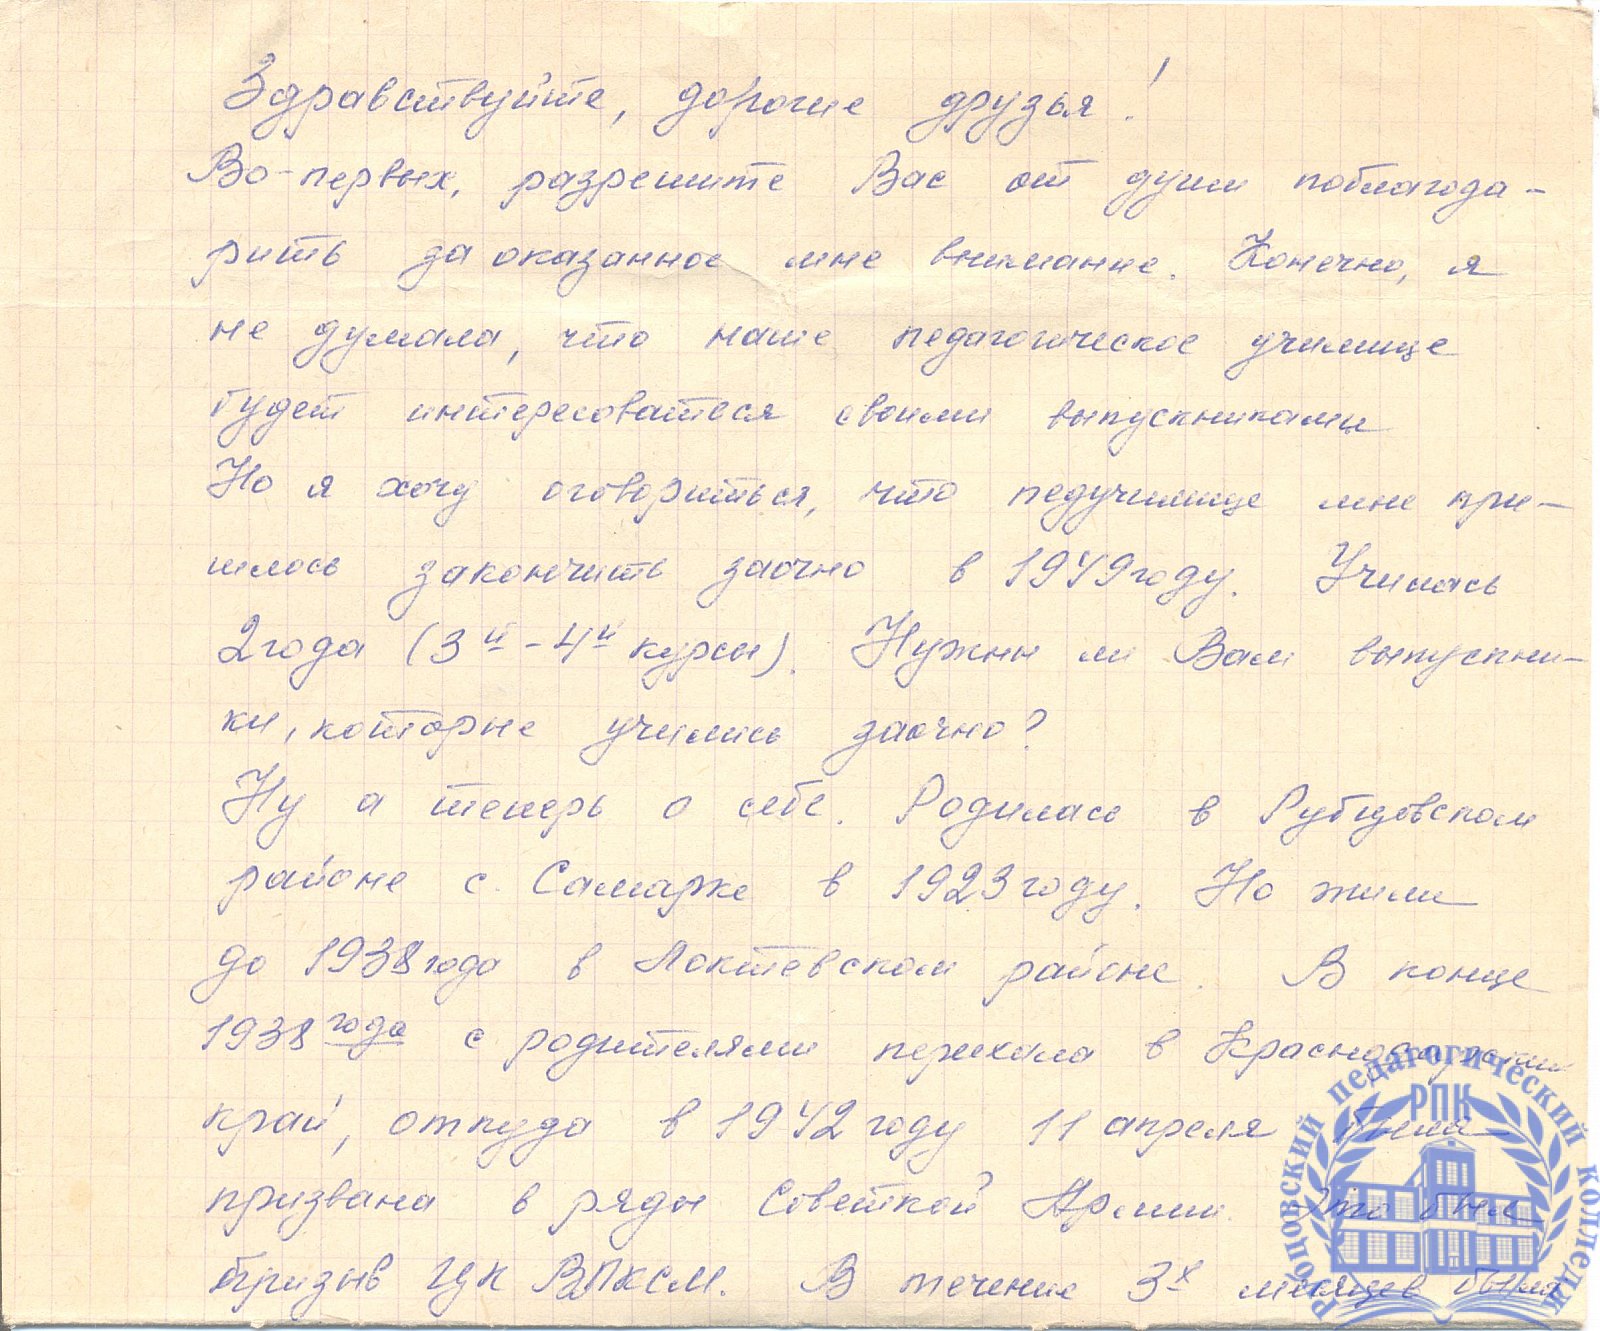 Здравствуйте, дорогие друзья!
Во-первых, разрешите Вас от души поблагода-
рить за оказанное мне внимание. Конечно, я
не думала, что наше педагогическое училище
будет интересоваться своими выпускниками
Но я хочу оговориться, что педучилище мне при-
шлось закончить заочно в 1949 году. Училась
2 года (3й - 4й курсы). Нужны ли Вам выпускни-
ки, которые учились заочно?
Ну а теперь о себе. Родилась в Рубцовском
районе с. Самарке в 1923 году. Но жили
до 1938 года в Локтевском районе. В конце
1938 года с родителями переехала в Красноярский
край, откуда в 1942 году 11 апреля была
призвана в ряды Советской Армии. Это был
призыв ЦК ВЛКСМ. В течение 3х месяцев была
Рубцовский педагогический колледж
РПК